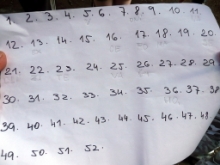 1. 2. 3. 4. 5. 6. 7. 8. 9. 10. 11.
12. 13. 14. 15. 16. 17. 18. 19. 20.
21. 22. 23. 24. 25. 26. 27. 28. 29
30. 31. 32. 33. 34. 35. 36. 37. 38
39. 40. 41. 42. 43. 44. 45. 46. 47. 48
49. 50. 51. 52.